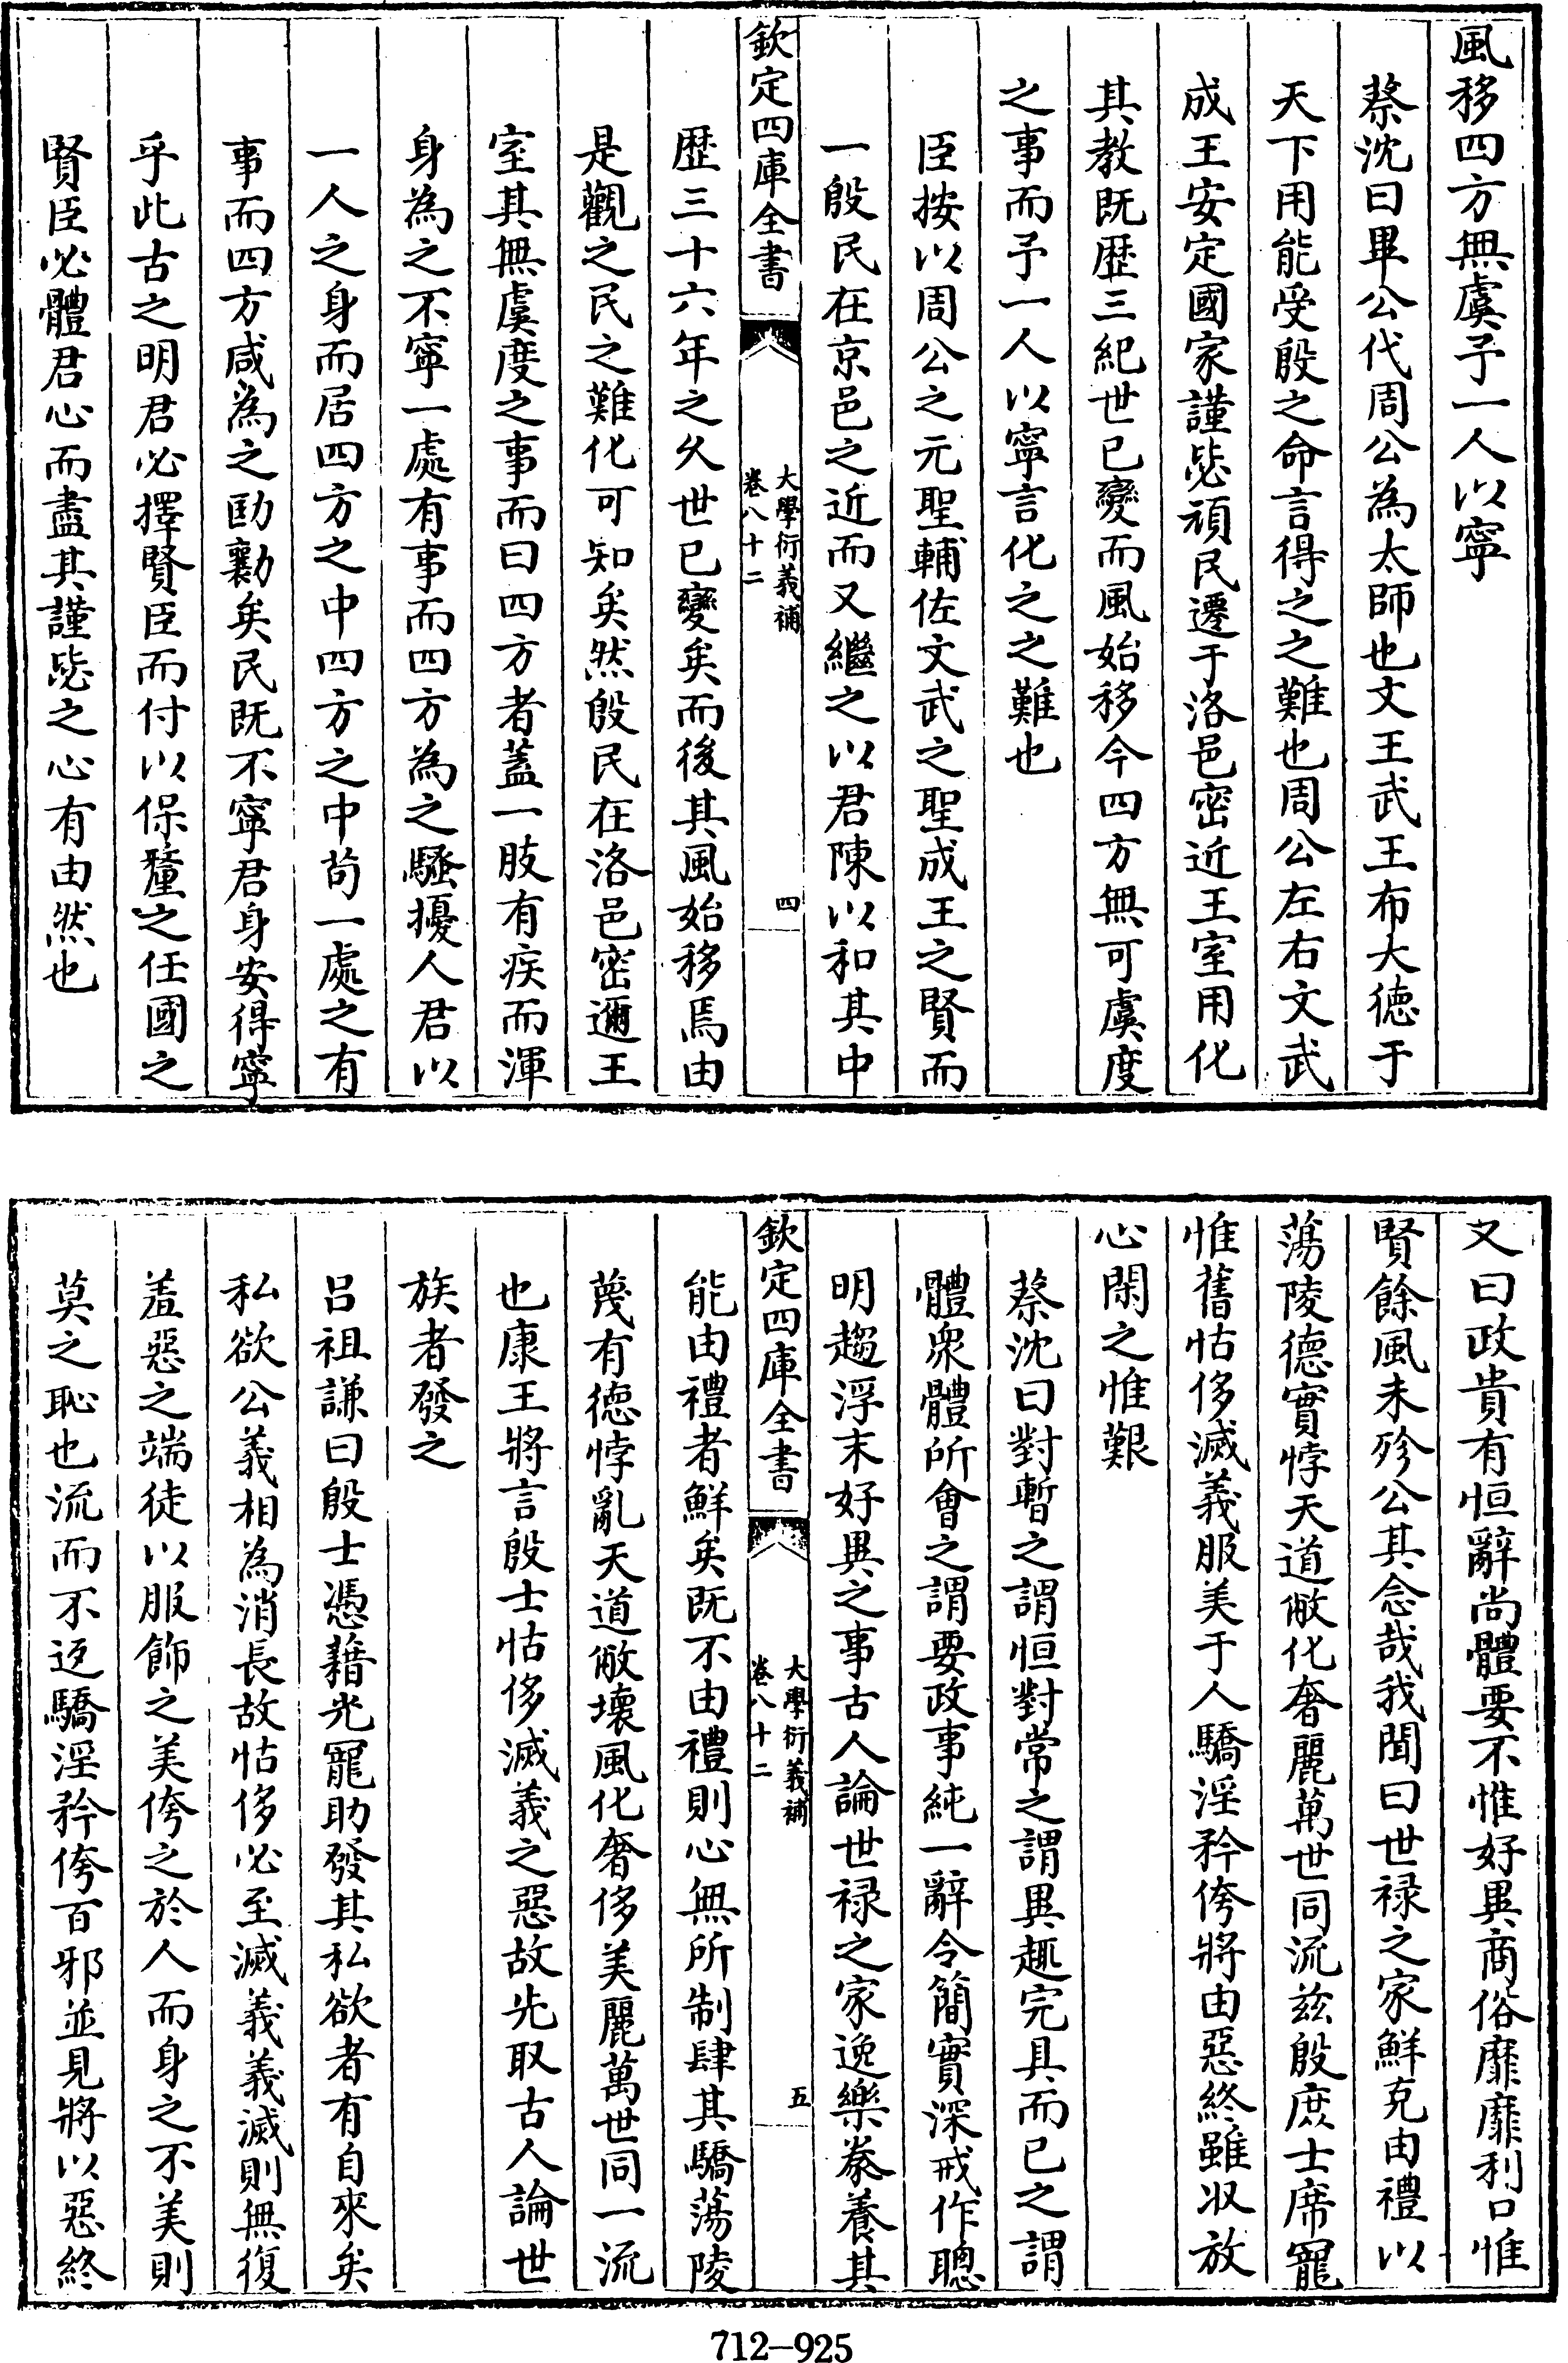 風移四方無虞予一人以寧
蔡沈曰畢公代周公為太師也文王武王布大德于
天下用能受殷之命言得之之難也周公左右文武
成王安定國家謹毖頑民遷于洛邑密近王室用化
其教既歴三紀世已變而風始移今四方無可虞度
之事而予一人以寧言化之之難也
臣按以周公之元聖輔佐文武之聖成王之賢而
一殷民在京邑之近而又繼之以君陳以和其中
欽定四庫全書
大學衍義補
卷八十二
四
歴三十六年之久世已變矣而後其風始移焉由
是觀之民之難化可知矣然殷民在洛邑密邇王
室其無虞度之事而曰四方者蓋一肢有疾而渾
身為之不寧一處有事而四方為之騷擾人君以
一人之身而居四方之中四方之中茍一處之有
事而四方咸為之劻勷矣民既不寧君身安得寧
乎此古之明君必擇賢臣而付以保釐之任國之
賢臣必體君心而盡其謹毖之心有由然也
又曰政貴有恒辭尚體要不惟好異商俗靡靡利口惟
賢餘風未殄公其念哉我聞曰世禄之家鮮克由禮以
蕩陵德實悖天道敝化奢麗萬世同流兹殷庶士席寵
惟舊怙侈滅義服美于人驕淫矜侉將由惡終雖收放
心閑之惟艱
蔡沈曰對暫之謂恒對常之謂異趣完具而已之謂
體衆體所會之謂要政事純一辭令簡實深戒作聰
明趨浮末好異之事古人論世禄之家逸樂豢養其
欽定四庫全書
大學衍義補
卷八十二
五
能由禮者鮮矣既不由禮則心無所制肆其驕蕩陵
蔑有德悖亂天道敝壞風化奢侈美麗萬世同一流
也康王將言殷士怙侈滅義之惡故先取古人論世
族者發之
吕祖謙曰殷士憑藉光寵助發其私欲者有自來矣
私欲公義相為消長故怙侈必至滅義義滅則無復
羞惡之端徒以服飾之美侉之於人而身之不美則
莫之恥也流而不返驕淫矜侉百邪並見將以惡終
712-925